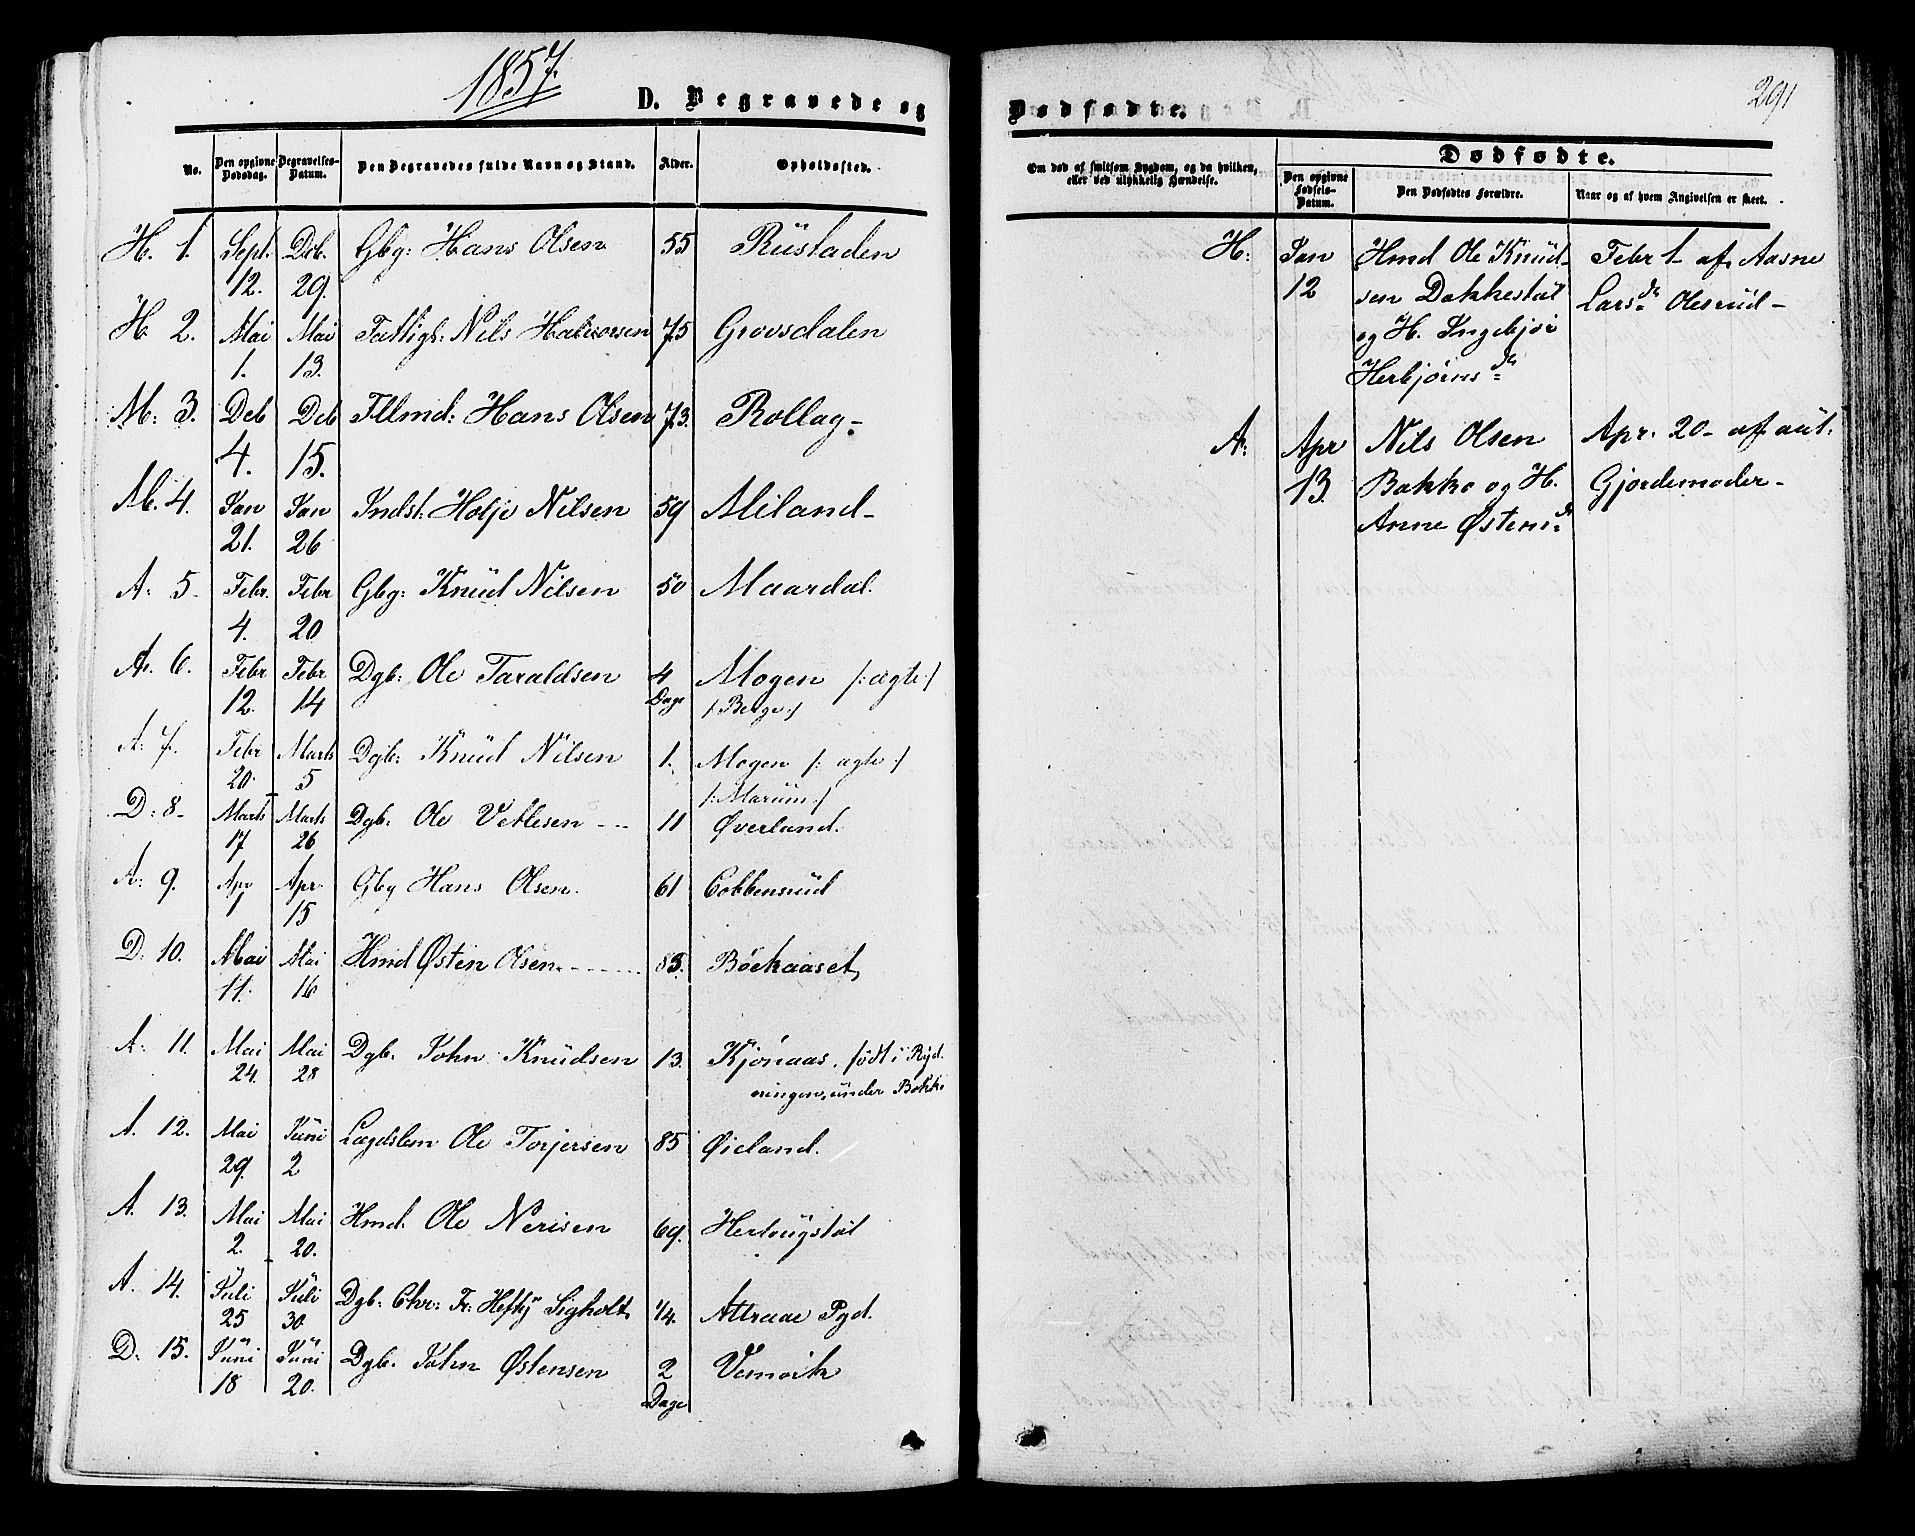 1857.
D. Begravede og
No. Den opgivne Dødsdag. Begravelses-Datum. Den Begravedes fulde Navn og Stand. Alder. Opholdssted.
H. 1. Sept. Deb. Gbg: Hans Olsen 55 Rustaden
12. 29.
H 2. Mai Mai Fattigl: Nils Halvorsen 75 Grovsdalen
1. 13.
M: 3. Deb Deb Fllmd: Hans Olsen 73. Rollag-
4. 15.
M. 4. Jan Jan Indst: Holje Nilsen 59 Miland-
21. 26
A: 5- Febr. Febr Gbg: Knud Nilsen 50 Maardal.
4. 20
A. 6. Febr Febr Dgb: Ole Taraldsen 4 Mogen /: ægte :/
12. 14 Dage /: Berge :/
A: 7. Febr Marts Dgb: Knud Nilsen 1. Mogen /: ægte :/
20. 5 /: Marum :/
D: 8- Marts Marts Dgb: Ole Vetlesen -- 11 Øverland.
17 26
A: 9. Apr Apr. Gbg Hans Olsen. 61 Cobbensrud
1 15
D: 10. Mai Mai Hmd Østen Olsen. 83. Böckaaset
11. 16
A: 11. Mai Mai Dgb. John Knudsen 13. Kjönaas, födt i Ryd-
24. 28 ningen, under Bakke
A. 12. Mai Juni Lægdslem Ole Torjersen 85 Øieland.
29. 2
A. 13. Mai Mai Hmd. Ole Nerisen 69. Hertugstøl
2. 20.
A. 14. Juli Juli Dgb: Chr: Fr: Hefty Sigholt 1/4. Attraae Pgd.
25 30.
D: 15. Juni Juni Dgb. John Østensen 2 Vemork
18 20. Dage
291
Dødfødte.
Om død af smitsom Sygdom, og da hvilken, eller ved ulykkelig Hændelse.
Dødfødte.
Den opgivne Fødsels-Datum. Den Dødfødtes Forældre. Naar og af hvem Angivelsen er skeet.
H: Jan Hmd Ole Knud- Febr 1- af Aasne
12 sen Dakkestøl Larsdr Olesrud-
og H. Ingebjør
Herbjørnsdr
A: Apr Nils Olsen Apr. 20- af aut.
13. Bakke og H. Gjordemoder-
Anne Østensdr